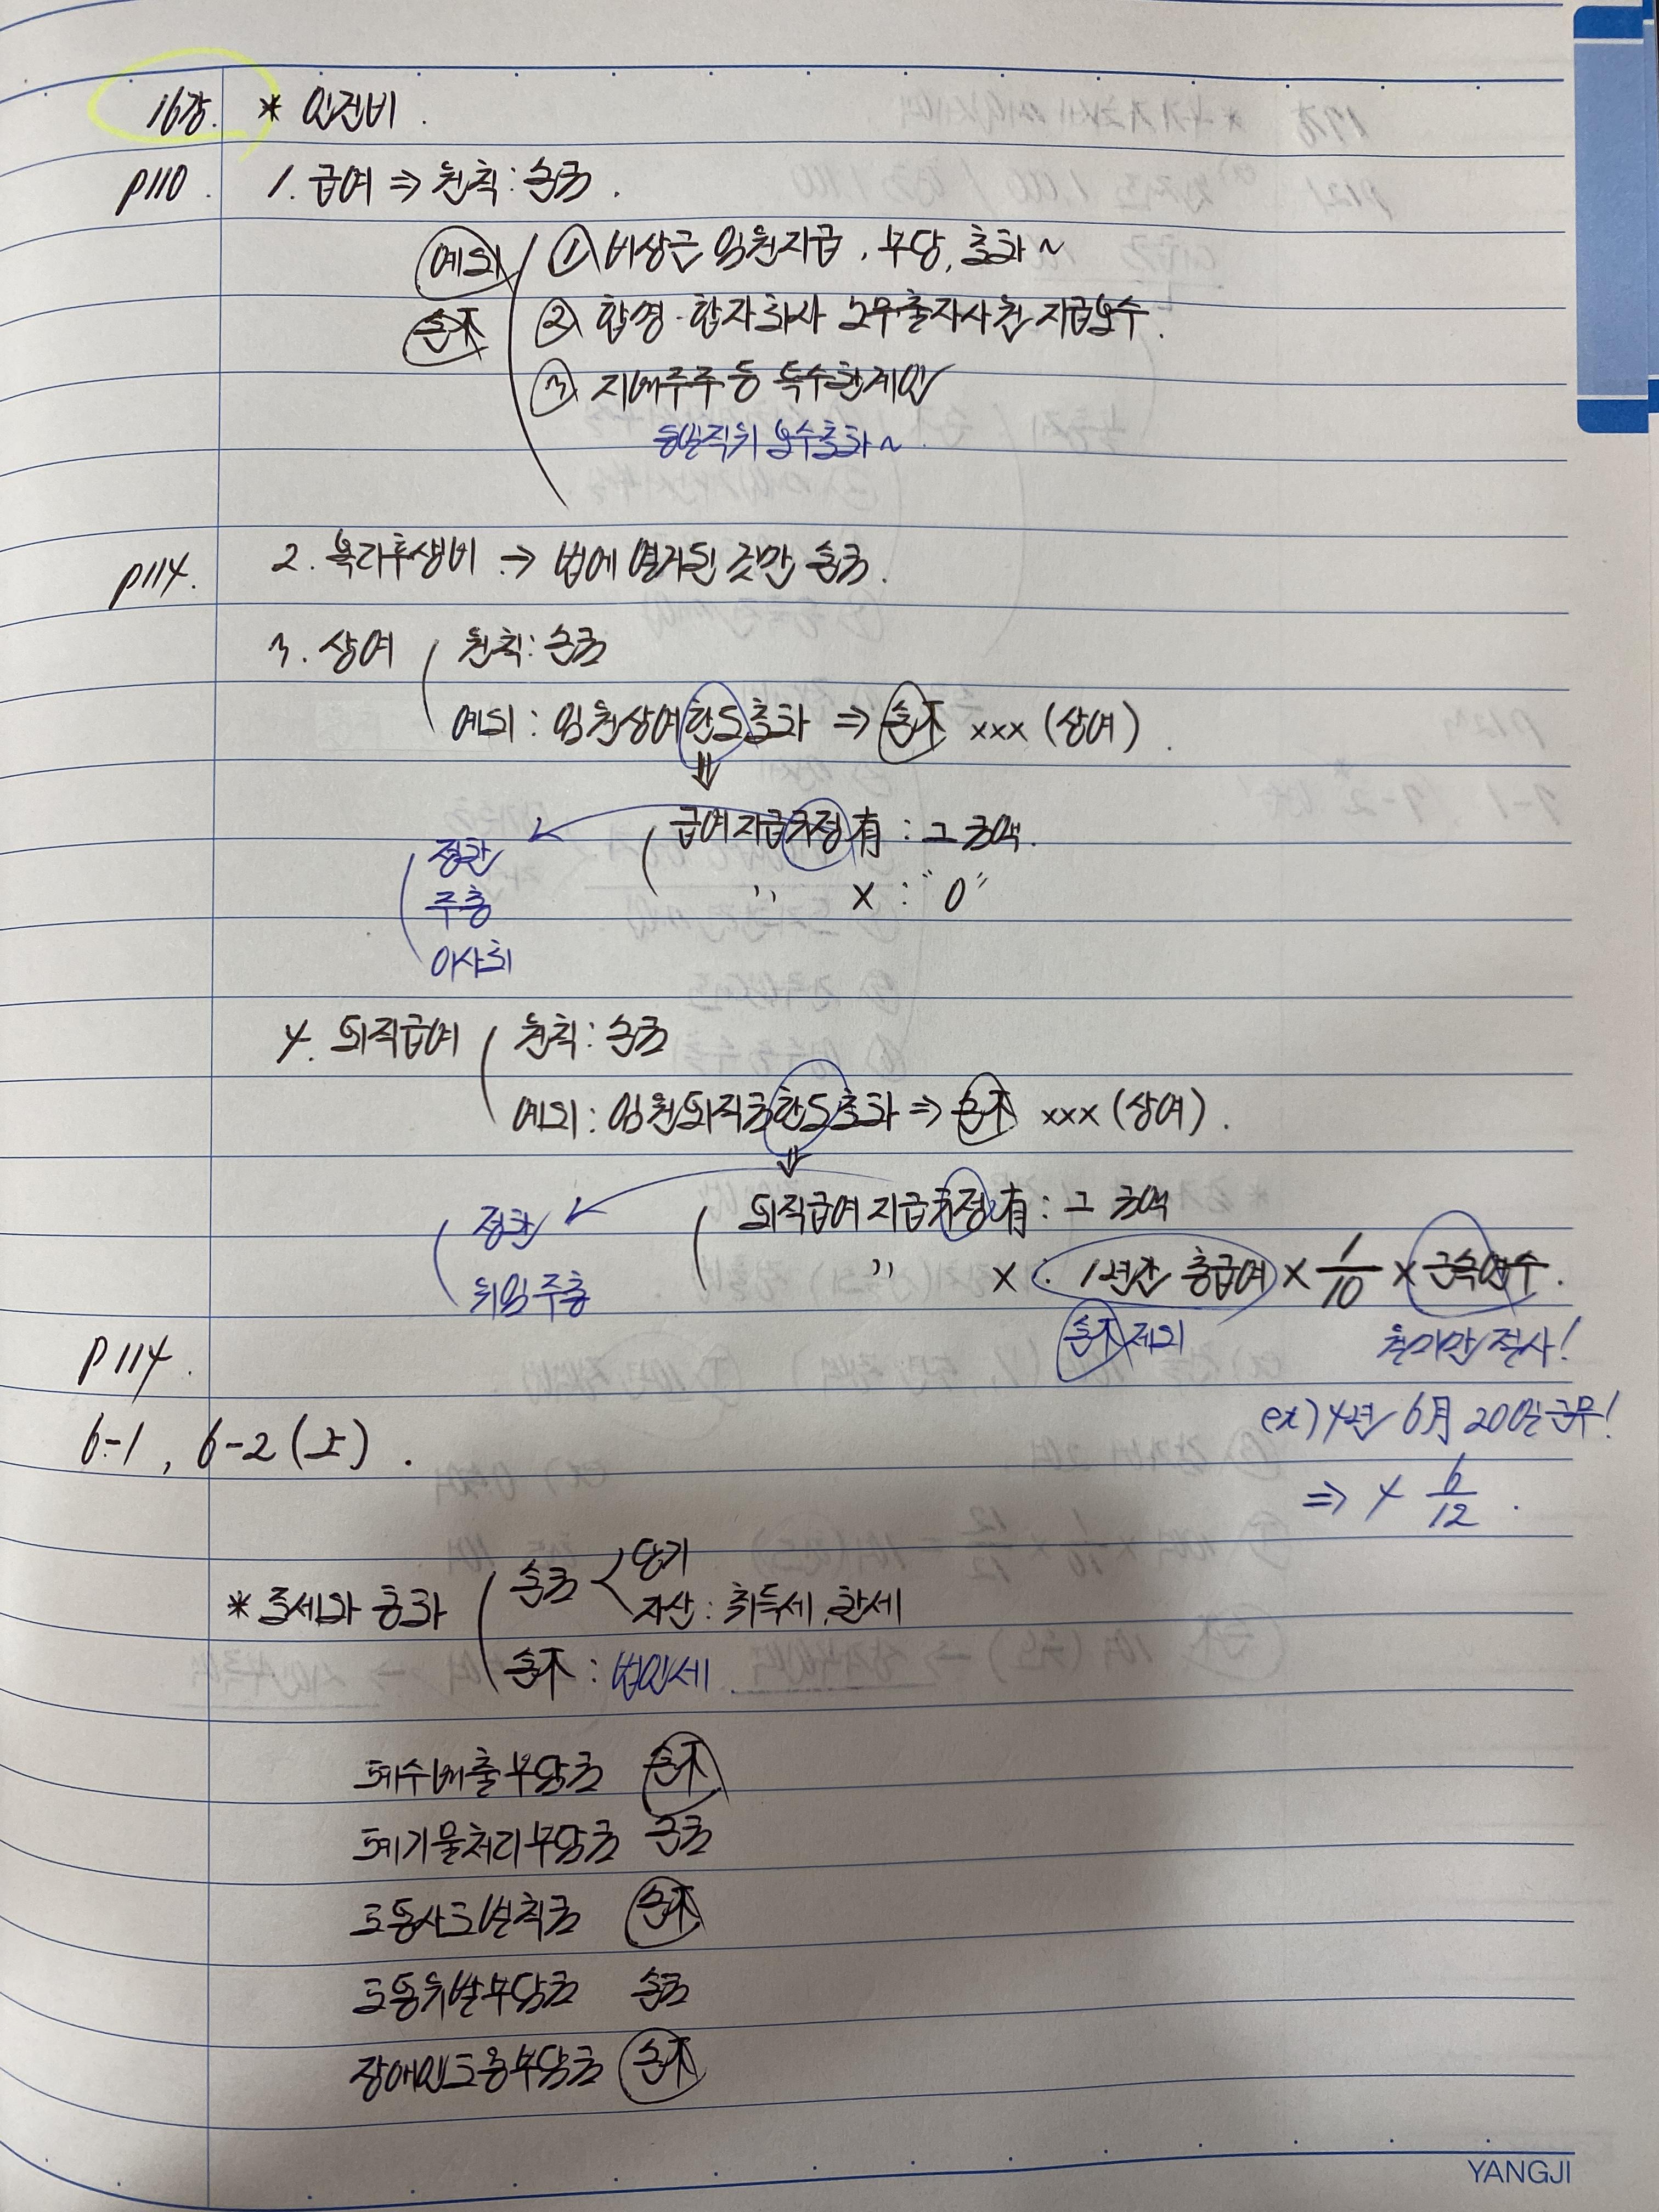 16강. * 인건비.
p110. 1. 급여 ⇒ 원칙: 손금.
예외 ① 비상근 임원지급, 부당, 초과~
손不 ② 합명·합자회사 노무출자사원 지급보수.
③ 지배주주 등 특수관계인
동일직위 보수초과~
p114. 2. 복리후생비 → 법에 열거된 것만 손금.
3. 상여 원칙: 손금
예외: 임원상여한도초과 ⇒ 손不 xxx (상여).
⇓
급여지급규정 有: 그 금액.
정관
〃 X : "0"
주총
이사회
4. 퇴직급여 원칙: 손금
예외: 임원퇴직금한도초과 ⇒ 손不 xxx (상여).
⇓
퇴직급여 지급규정 有: 그 금액
정관
〃 X : 1년간 총급여 × 1/10 × 근속연수.
위임주총
손不 제외 월미만 절사!
p114.
ex) 4년 6月 20일 근무!
6-1, 6-2(노).
⇒ 4 6/12.
* 조세와 공과 손금 < 당기
자산: 취득세, 관세
손不: 법인세.
폐수배출부담금 손不
폐기물처리부담금 손금
교통사고벌칙금 손不
교통유발부담금 손금
장애인고용부담금 손不
YANGJI